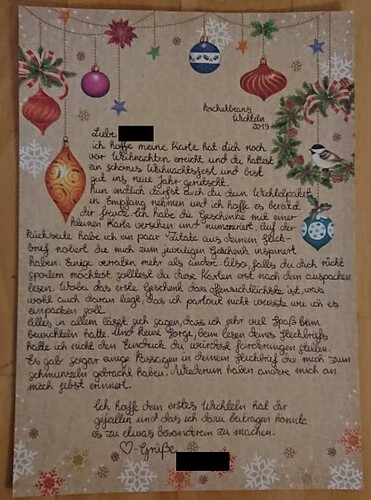 Kochutbears
Wichteln
2019
Liebe
ich hoffe meine Karte hat dich noch
vor Weihnachten erreicht und du hattest
ein schönes Weihnachtsfest und bist
gut ins neue Jahr gerutscht.
Nun endlich darfst auch du dein Wichtelpaket
in Empfang nehmen und ich hoffe es bereitet
dir Freude. Ich habe die Geschenke mit einer
kleinen Karte versehen und nummeriert. Auf der
Rückseite habe ich ein paar Zitate aus deinem Steck-
brief notiert die mich zum jeweiligen Geschenk inspiriert
haben. Einige verraten mehr als andere. Also falls du dich nicht
spoilern möchtest solltest du diese Karten erst nach dem auspacken
lesen. Wobei das erste Geschenk das offensichtlichste ist, was
wohl auch daran liegt, das ich partout nicht wusste wie ich es
einpacken soll.
Alles in allem lässt sich sagen, dass ich sehr viel Spaß beim
bewichteln hatte. Und keine Sorge, beim lesen deines Steckbriefs
hatte ich nicht den Eindruck du würdest Forderungen stellen.
Es gab sogar einige Passagen in deinem Steckbrief die mich zum
schmunzeln gebracht haben. Wiederum haben andere mich an
mich selbst erinnert.
Ich hoffe dein erstes Wichteln hat dir
gefallen und das ich dazu beitragen konnte
es zu etwas besonderem zu machen.
♡-Grüße